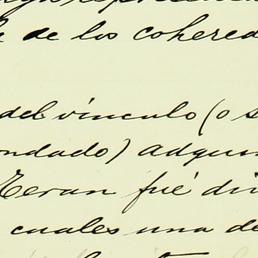 de los cohered
del vínculo (o s
ondado) adqui
Teran fué di
cuales una de